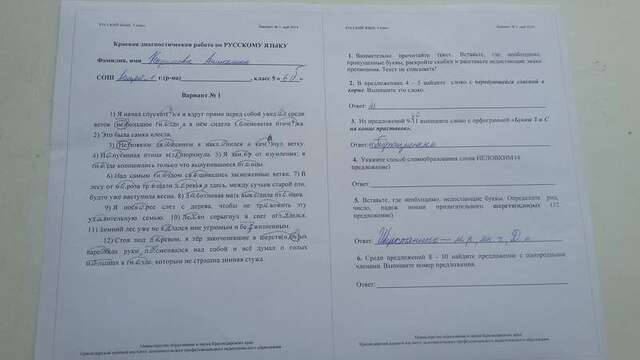 РУССКИЙ ЯЗЫК, 5 класс
Вариант № 1, май 2014
Краевая диагностическая работа по РУССКОМУ ЯЗЫКУ
Фамилия, имя
СОШ г.(р-на) , класс 5 « 6 »
Вариант № 1
1) Я начал спускат ся и вдруг прямо перед собой увид среди
ветвей не большое гн здо, а в нём сидела с леноватая птичка.
2) Это была самка клеста.
3) Не ловким движением я накл нился и кач нул ветку.
4) И пуганная птица вспорхнула. 5) Я зам р от изумления: в
гн зде копошились только что вылупившиеся птенцы.
6) Над самым гн здом св шивались заснеженные ветви. 7) В
лесу от м роза тр щали д ревья, а здесь, между сучьев старой ели,
будто уже наступила весна. 8) За ботливая мать вывела птенцов.
9) Я поск рее слез с дерева, чтобы не тр вожить эту
уд вительную семью. 10) Легко спрыгнул в снег огляделся.
11) Зимний лес уже не к зался мне угрюмым и бе жизненным.
12) Стоя под д ревом, я тёр закоченевшие в шерстя ых
варежках руки, посмеивался над собой и всё думал о голых
птенцах в гн зде, которым не страшна зимняя стужа.
Министерство образования и науки Краснодарского края
Краснодарский краевой институт дополнительного профессионального педагогического образования
РУССКИЙ ЯЗЫК, 5 класс
Вариант № 1, май 2014
1. Внимательно прочитайте текст. Вставьте, где необходимо,
пропущенные буквы, раскройте скобки и расставьте недостающие знаки
препинания. Текст не списывать!
2. В предложениях 4 – 5 найдите слово с чередующейся гласной в
корне. Выпишите это слово.
Ответ
3. Из предложений 9-11 выпишите слово с орфограммой «Буквы З и С
на конце приставок».
Ответ
4. Укажите способ словообразования слова НЕЛОВКИМ (3
предложение)
Ответ
5. Вставьте, где необходимо, недостающие буквы. Определите род,
число, падеж имени прилагательного шерстя(н,нн)ых (12
предложение)
Ответ
6. Среди предложений 8 – 10 найдите предложение с однородными
членами. Выпишите номер предложения.
Ответ:
Министерство образования и науки Краснодарского края
Краснодарский краевой институт дополнительного профессионального педагогического образования